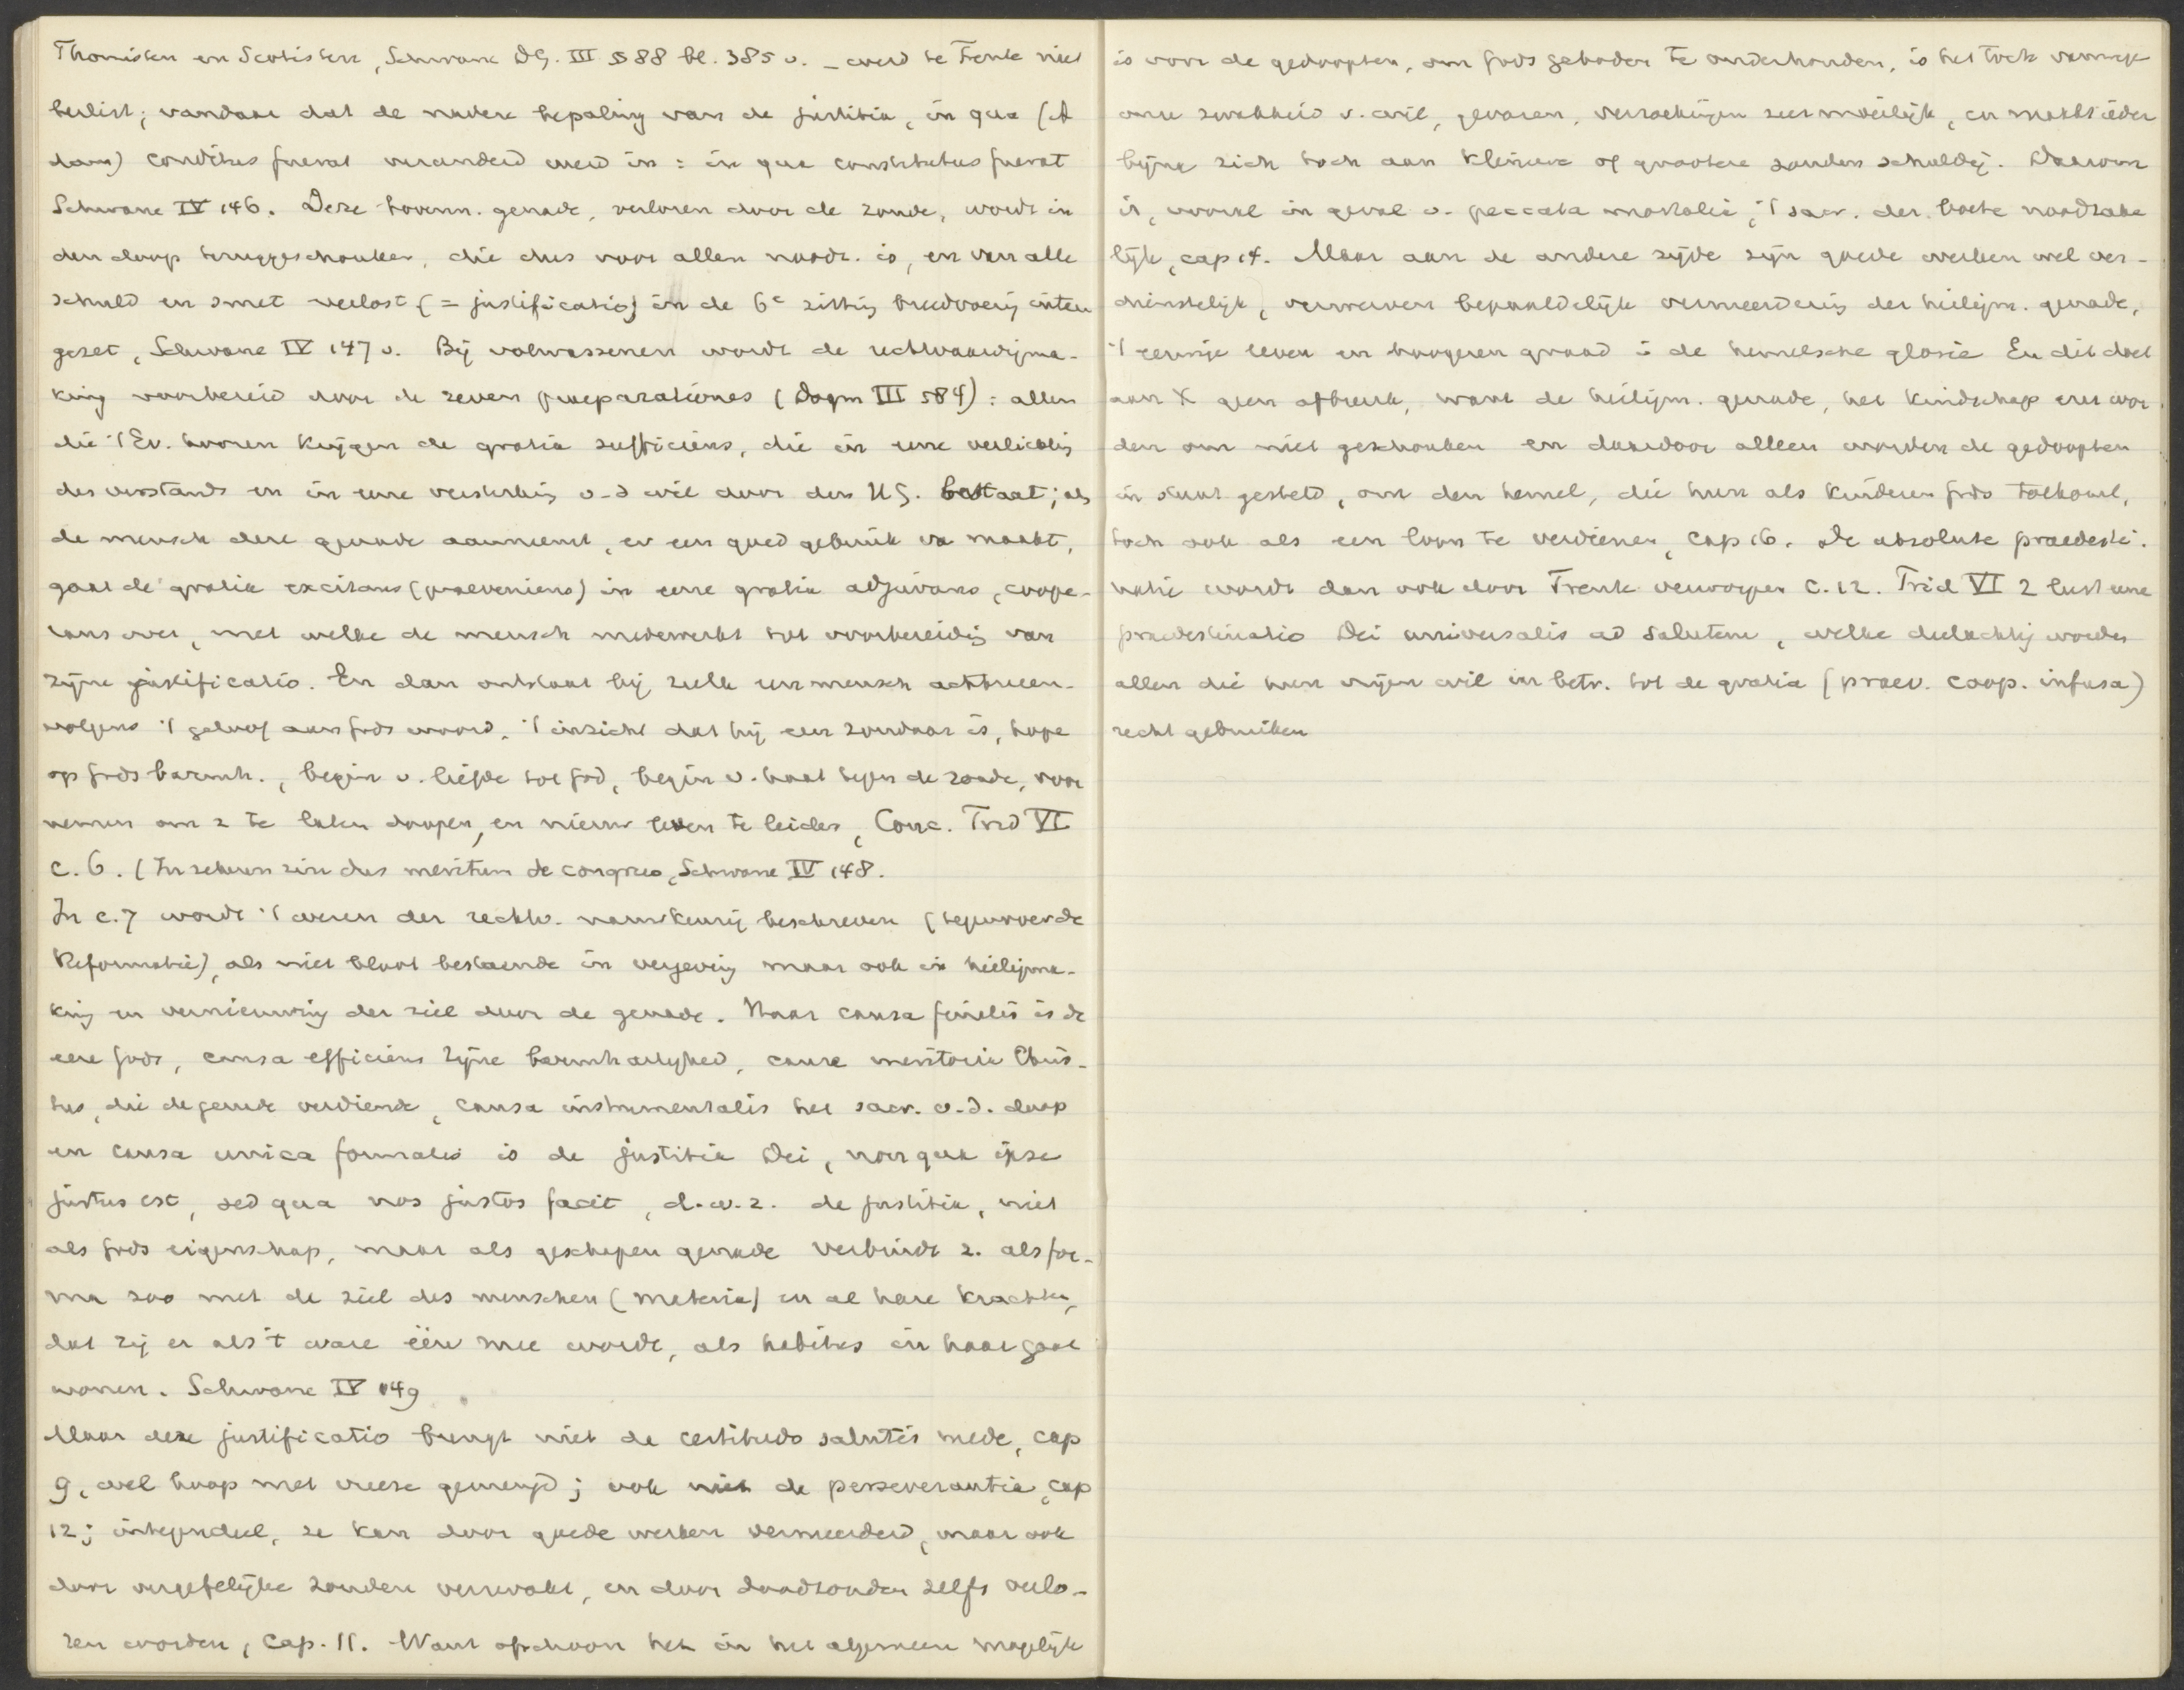 Thomisten en Scotisten, Schwane DG. III § 88 bl. 385 v. _ werd te Trente niet
beslist; vandaar dat de nadere bepaling van de justitia, in qua (A
dam) conditus fuerat veranderd werd in: in qua constitutus fuerat
Schwane IV 146. Deze bovenn. genade, verloren door de zonde, wordt in
den doop teruggeschonken, die dus voor allen noodz. is, en van alle
schuld en smet verlost (= justificatio) in de 6e zitting breedvoerig uiteen
gezet, Schwane IV 147 v. Bij volwassenen wordt de rechtvaardigma-
king voorbereid door de zeven praeparationes (Dogm III 584): allen
die 't Ev. hooren krijgen de gratia sufficiens, die in eene verlichting
des verstands en in eene versterking v. d wil door den HG. bestaat; als
de mensch deze genade aanneemt, er een goed gebruik va maakt,
gaat de gratia excitans (praeveniens) in eene gratia adjuvans, coope-
rans over, met welke de mensch medewerkt tot voorbereiding van
zijne justificatio. En dan ontstaat bij zulk een mensch achtereen-
volgens 't geloof aan Gods woord, 't inzicht dat hij een zondaar is, hope
op Gods barmh., begin v. liefde tot God, begin v. haat tegen de zonde, voor
nemen om z te laten doopen, en nieuw leven te leiden, Conc. Trid VI
c. 6. (In zekeren zin dus meritum de congruo, Schwane IV 148.
In c. 7 wordt 't wezen der rechtv. nauwkeurig beschreven (tegenover de
Reformatie), als niet bloot bestaende in vergeving maar ook in heiligma-
king en vernieuwing der ziel door de genade. Haar causa finalis is de
eere Gods, causa efficiens zijne barmhartigheid, causa meritoria Chris-
tus, die de genade verdiende, causa instrumentalis het sacr. v. d. doop
en causa unica formalis is de justitia Dei, non qua ipse
justus est, sed qua nos justos facit, d. w. z. de justitia, niet
als Gods eigenschap, maar als geschapen genade verbindt z. als for-
ma zoo met de ziel des menschen (materia) en al hare krachten,
dat zij er als 't ware één mee wordt, als habitus in haar gaat
wonen. Schwane IV 149
Maar deze justificatio brengt niet de certitudo salutis mede, cap
9, wel hoop met vreeze gemengd; ook niet de perseverantia, cap
12; integendeel, ze kan door goede werken vermeerderd, maar ook
door vergefelijke zonden verzwakt, en door doodzonden zelfs verlo-
ren worden, cap. 11. Want ofschoon het in het algemeen mogelijk
is voor de gedoopten, om Gods geboden te onderhouden, is het toch vanwege
onze zwakheid v. wil, gevaren, verzoekingen zeer moeilijk, en maakt ieder
bijna zich toch aan kleinere of grootere zonden schuldig. Daarom
is, vooral in geval v. peccata mortalia, 't sacr. der boete noodzake
lijk, cap 14. Maar aan de andere zijde zijn goede werken wel ver-
dienstelijk, verwerven bepaaldelijk vermeerdering der heiligm. genade,
't eeuwige leven en hoogeren graad i de hemelsche glorie En dit doet
aan X geen afbreuk, want de heiligm. genade, het kindschap enz wor
den om niet geschonken en daardoor alleen worden de gedoopten
in staat gesteld, om den hemel, die hun als kinderen Gods toekomt,
toch ook als een loon te verdienen, cap 16. De absolute praedesti-
natie wordt dan ook door Trente verworpen c. 12. Trid VI 2 leert eene
praedestinatio Dei universalis ad salutem, welke deelachtig worden
allen die hun vrijen wil in betr. tot de gratia (praev. coop. infusa)
recht gebruiken